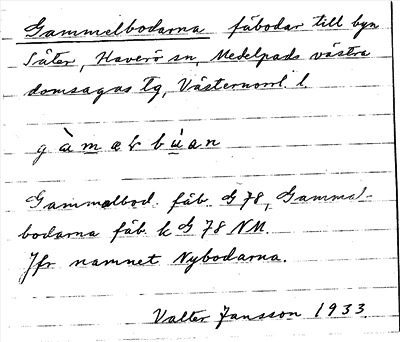 Gammelbodarna fäbodar till byn
Säter, Haverö sn, Medelpads västra
domsagas tg, Västernorrl. l.
g à m e l b ú a n
Gammelbod. fäb. G 78, Gammel-
bodarna fäb. k G 78 NM.
Jfr namnet Nybodarna.
Valter Jansson 1933.